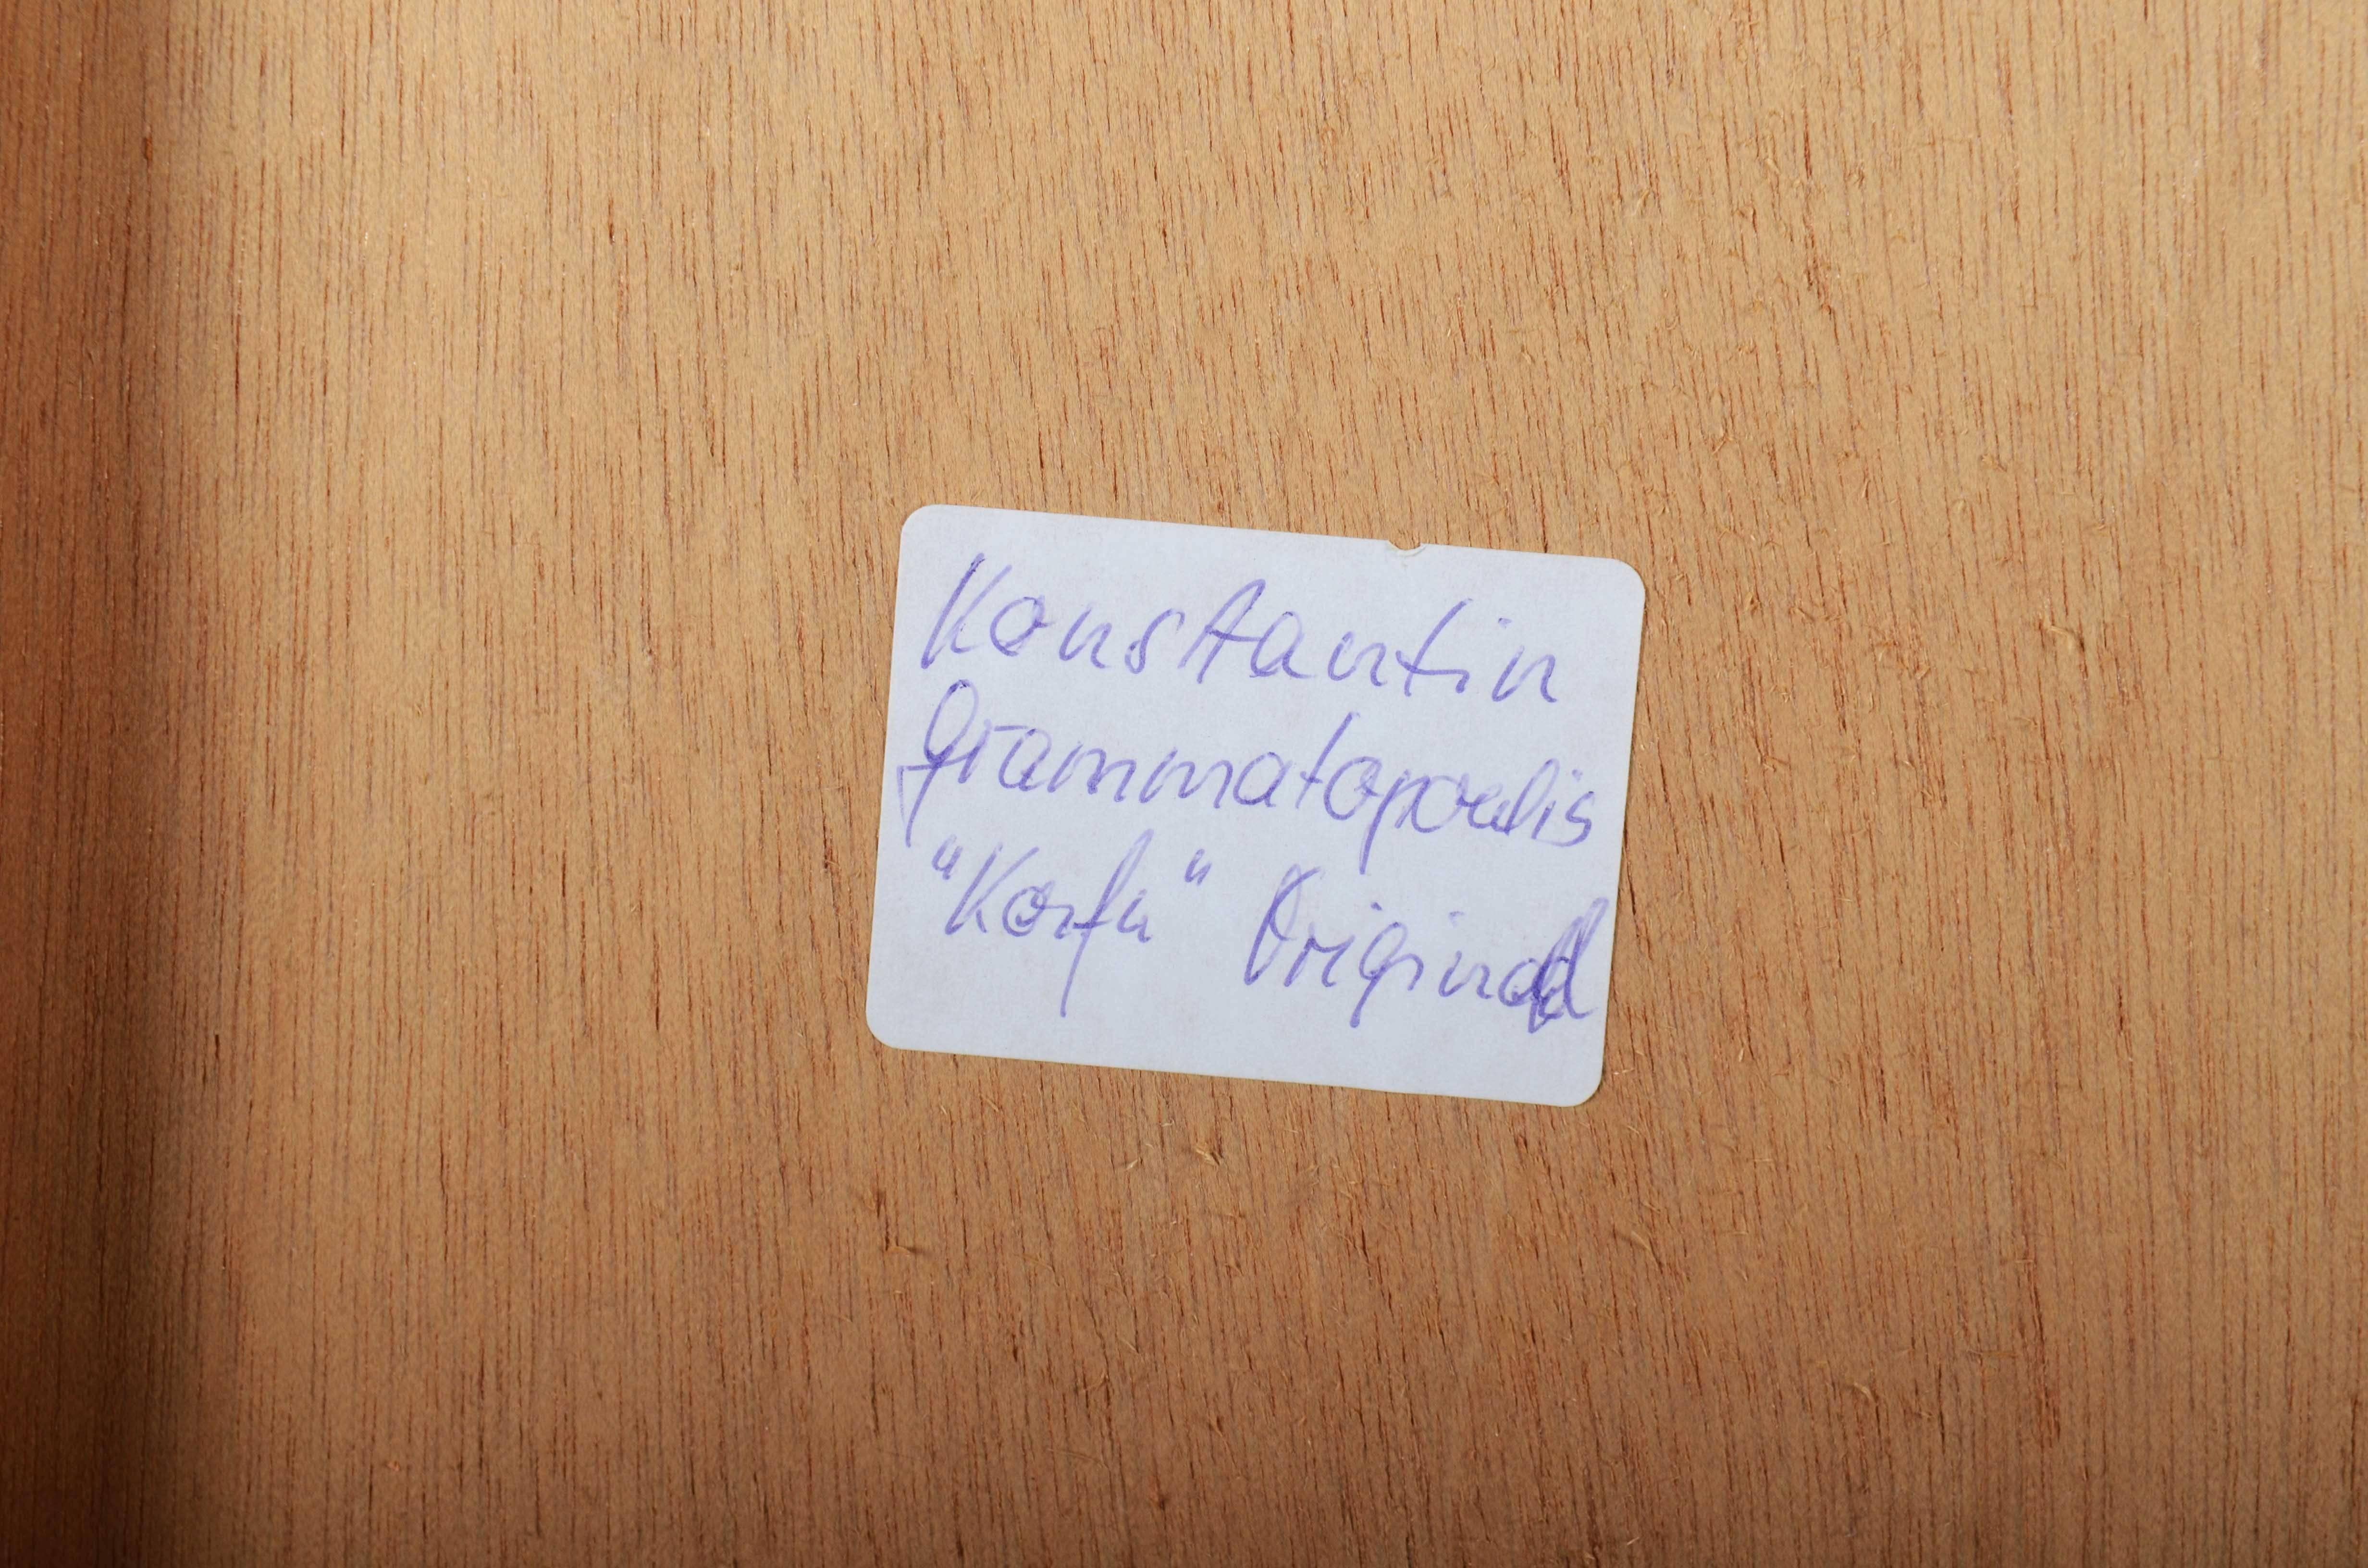 Konstantin
Grammatopoulis
"Korfu" Original